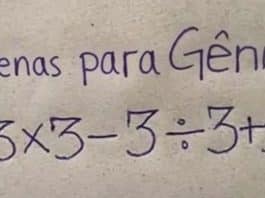 enas para Gên
3×3-3÷3+